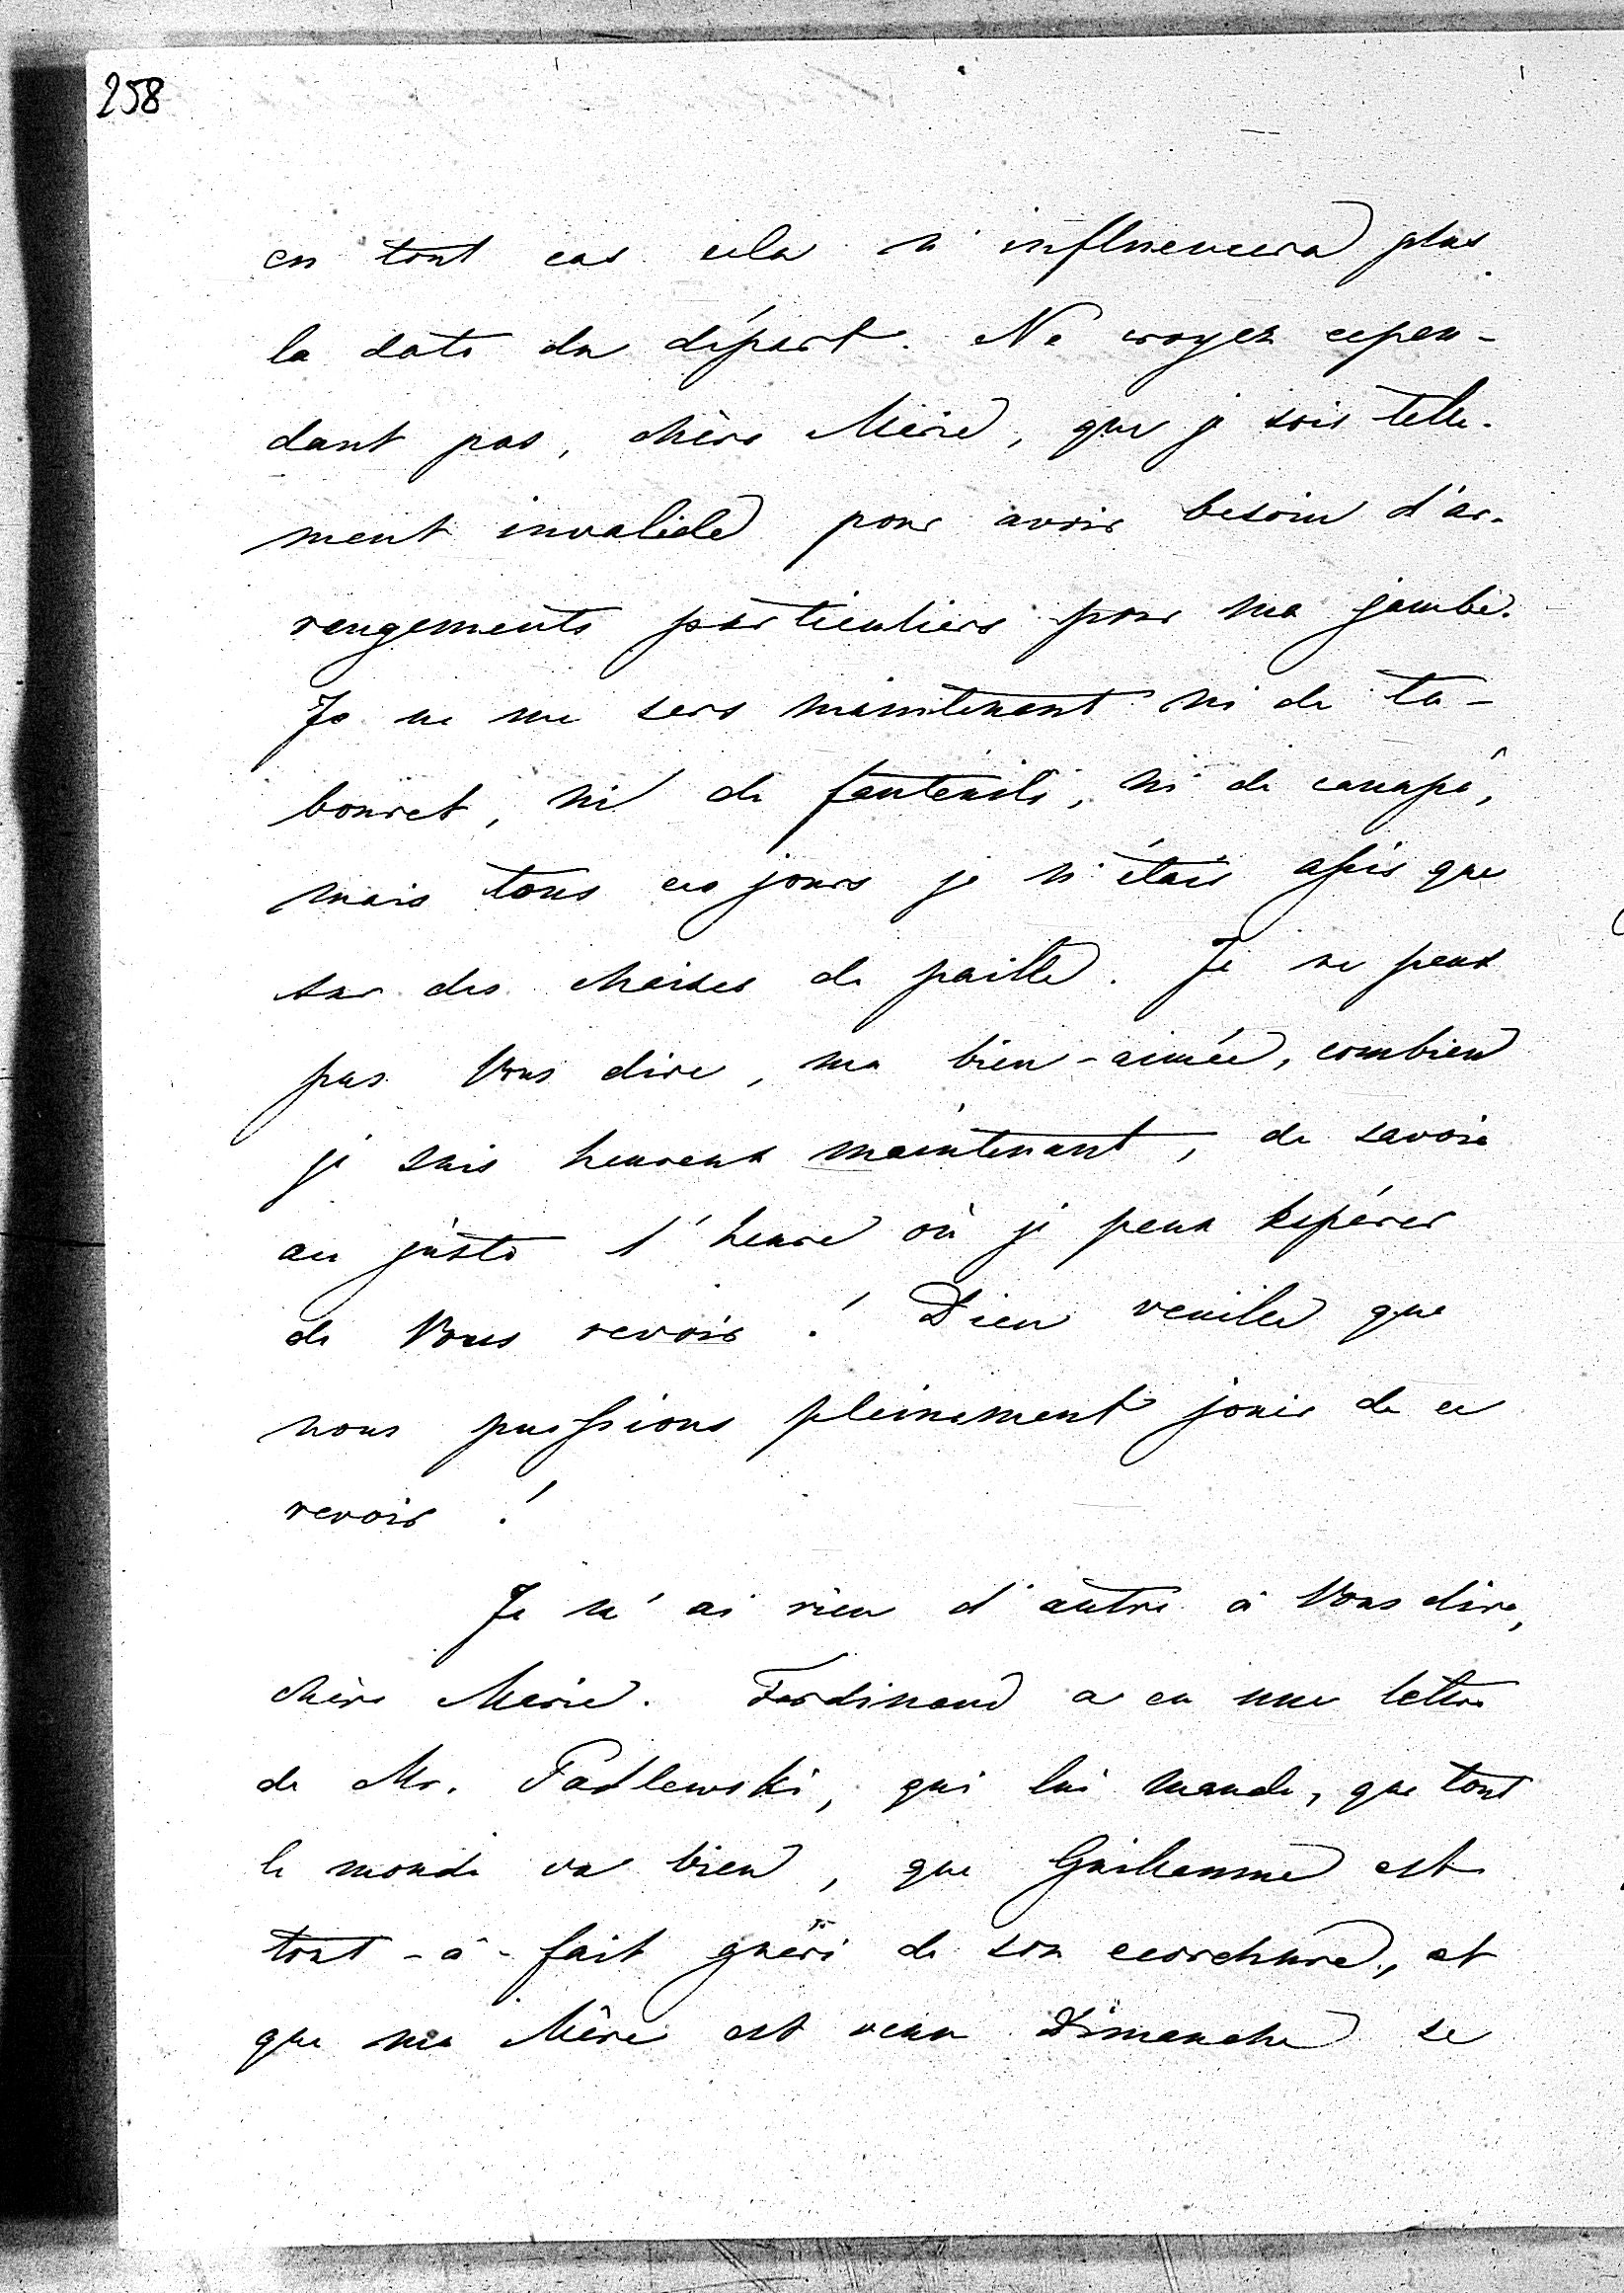 258
en tout cas cela n'influencera plus
la date du départ. Ne croyez cepen-
dant pas, chère Marie, que je sois telle-
ment invalide pour avoir besoin d'ar-
rangements particuliers pour ma jambe.
Je ne me sers maintenant ni de ta-
bouret, ni de fauteuils, ni de canapé,
mais tous ces jours je n'étais assis que
sur des chaises de paille. Je ne peux
pas Vous dire, ma bien-aimée, combien
je suis heureux maintenant, de savoir
au juste l'heure où je peux espérer
de Vous revoir! Dieu veuille que
nous puissions pleinement jouir de ce
revoir!
Je n'ai rien d'autre à Vous dire,
chère Marie. Ferdinand a eu une lettre
de Mr. Padlewski, qui lui mande, que tout
le monde va bien, que Guillaume est
tout-à-fait guéri de son ecorchure, et
que ma Mère est venu Dimanche se